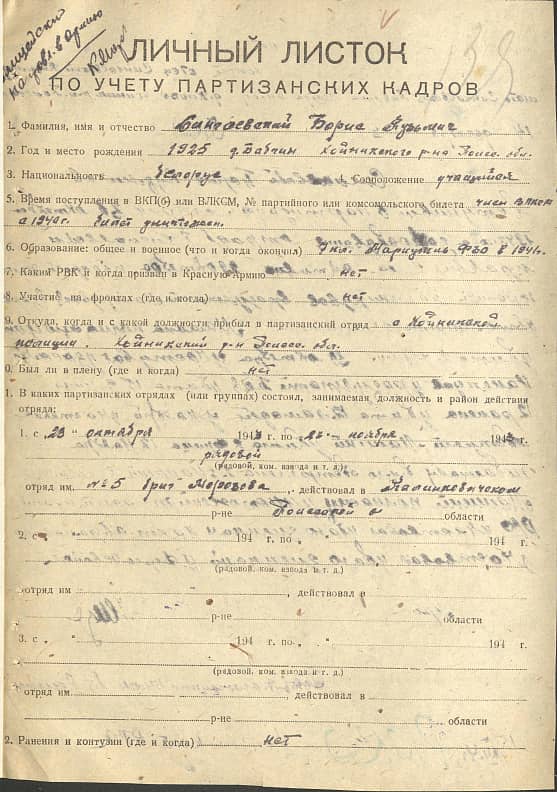 на удов. в армию
ЛИЧНЫЙ ЛИСТОК
ПО УЧЕТУ ПАРТИЗАНСКИХ КАДРОВ
1. Фамилия, имя и отчество Борис Кузьмич
2. Год и место рождения 1925 д. Бабчин Хойникского р-на Полесс. обл.
3. Национальность белорус 4. Соцположение учащийся
5. Время поступления в ВКП(б) или ВЛКСМ, № партийного или комсомольского билета член ВЛКСМ
с 1940 г. билет уничтожен.
6. Образование: общее и военное (что и когда окончил) 7 кл. ФЗО в 1941 г.
7. Каким РВК и когда призван в Красную Армию нет
8. Участие на фронтах (где и когда) нет
9. Откуда, когда и с какой должности прибыл в партизанский отряд с Хойникской
полиции. Хойникский р-н Полесс. обл.
0. Был ли в плену (где и когда) нет
1. В каких партизанских отрядах (или группах) состоял, занимаемая должность и район действия
отряда:
1. с 23 " октября 1943 г. по 22 " ноября 1943 г.
рядовой
(рядовой, ком. взвода и т. д.)
отряд им. № 5 бриг Морозова, действовал в Калинковичском
р-не Полесской о области
2. с " 194 г. по " 194 г.
(рядовой, ком. взвода и т. д.)
отряд им , действовал в
р-не области
3. с " 194 г. по " 194 г.
(рядовой, ком. взвода и т. д.)
отряд им. , действовал в
р-не области
2. Ранения и контузии (где и когда) нет